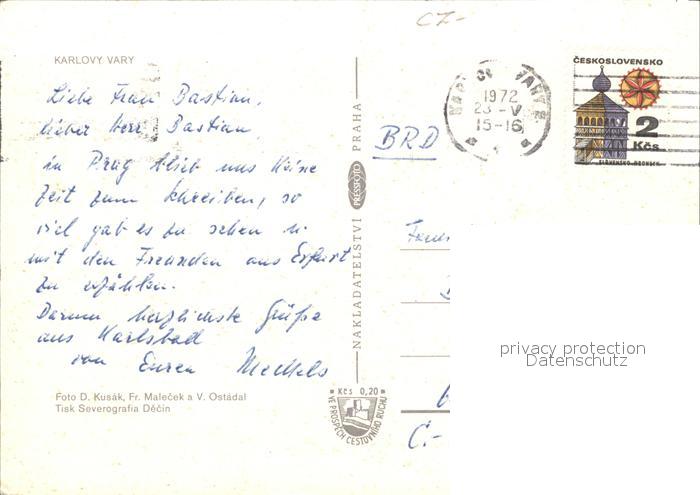 CZ-
KARLOVY VARY
Liebe Frau Bastian,
lieber Herr Bastian,
in Prag blieb uns keine
Zeit zum Schreiben, so
viel gab es zu sehen u.
mit den Freunden aus Erfurt
zu erzählen.
Darum herzlichste Grüße
aus Karlsbad
von Euren
Foto D. Kusák, Fr. Maleček a V. Ostádal
Tisk Severografia Děčín
NAKLADATELSTVÍ PRESSFOTO PRAHA
Kčs 0,20
VE PROSPĚCH CESTOVNÍHO RUCHU
BRD
1972
23.-V.
15-16
ČESKOSLOVENSKO
2
Kčs
privacy protection
Datenschutz